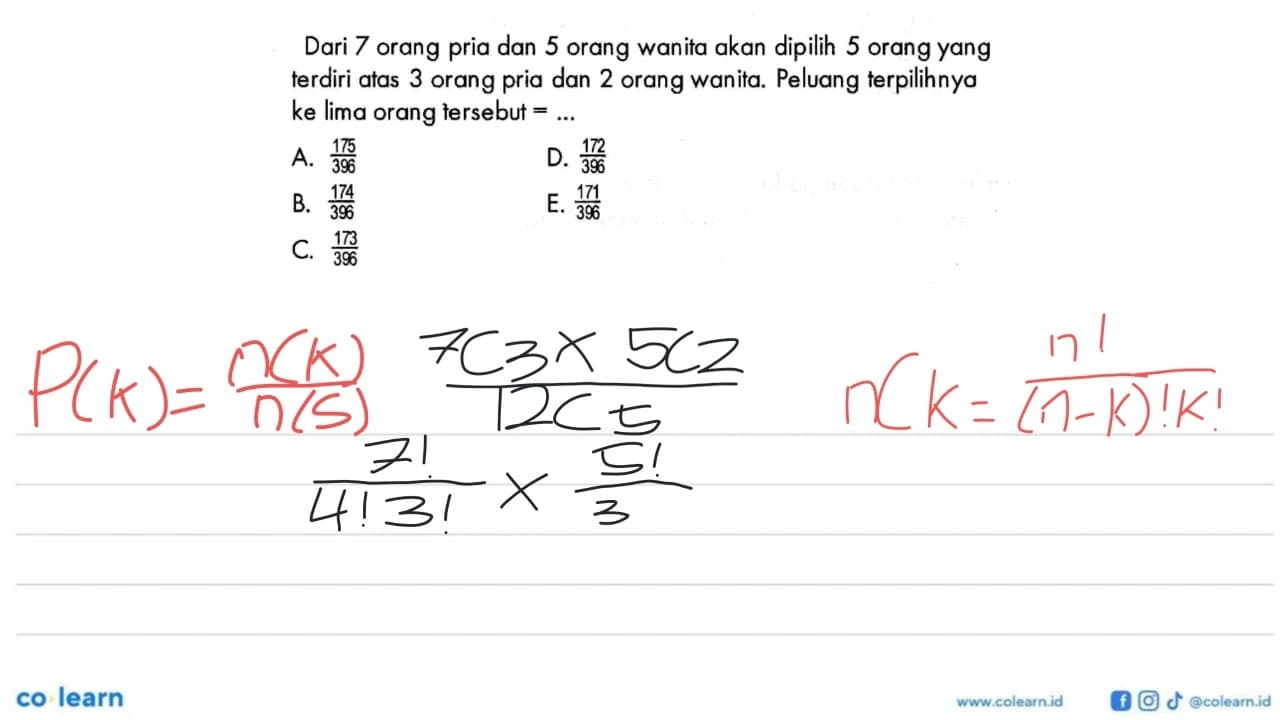 Dari 7 orang pria dan 5 orang wanita akan dipilih 5 orang yang
terdiri atas 3 orang pria dan 2 orang wanita. Peluang terpilihnya
ke lima orang tersebut = ...
A. 175/396 D. 172/396
B. 174/396 E. 171/396
C. 173/396
P(K) = n(K)/n(S) 7C3 × 5C2 / 12C5 nCk = n!/(n-k)!k!
7!/4!3! × 5!/3
co learn www.colearn.id @colearn.id